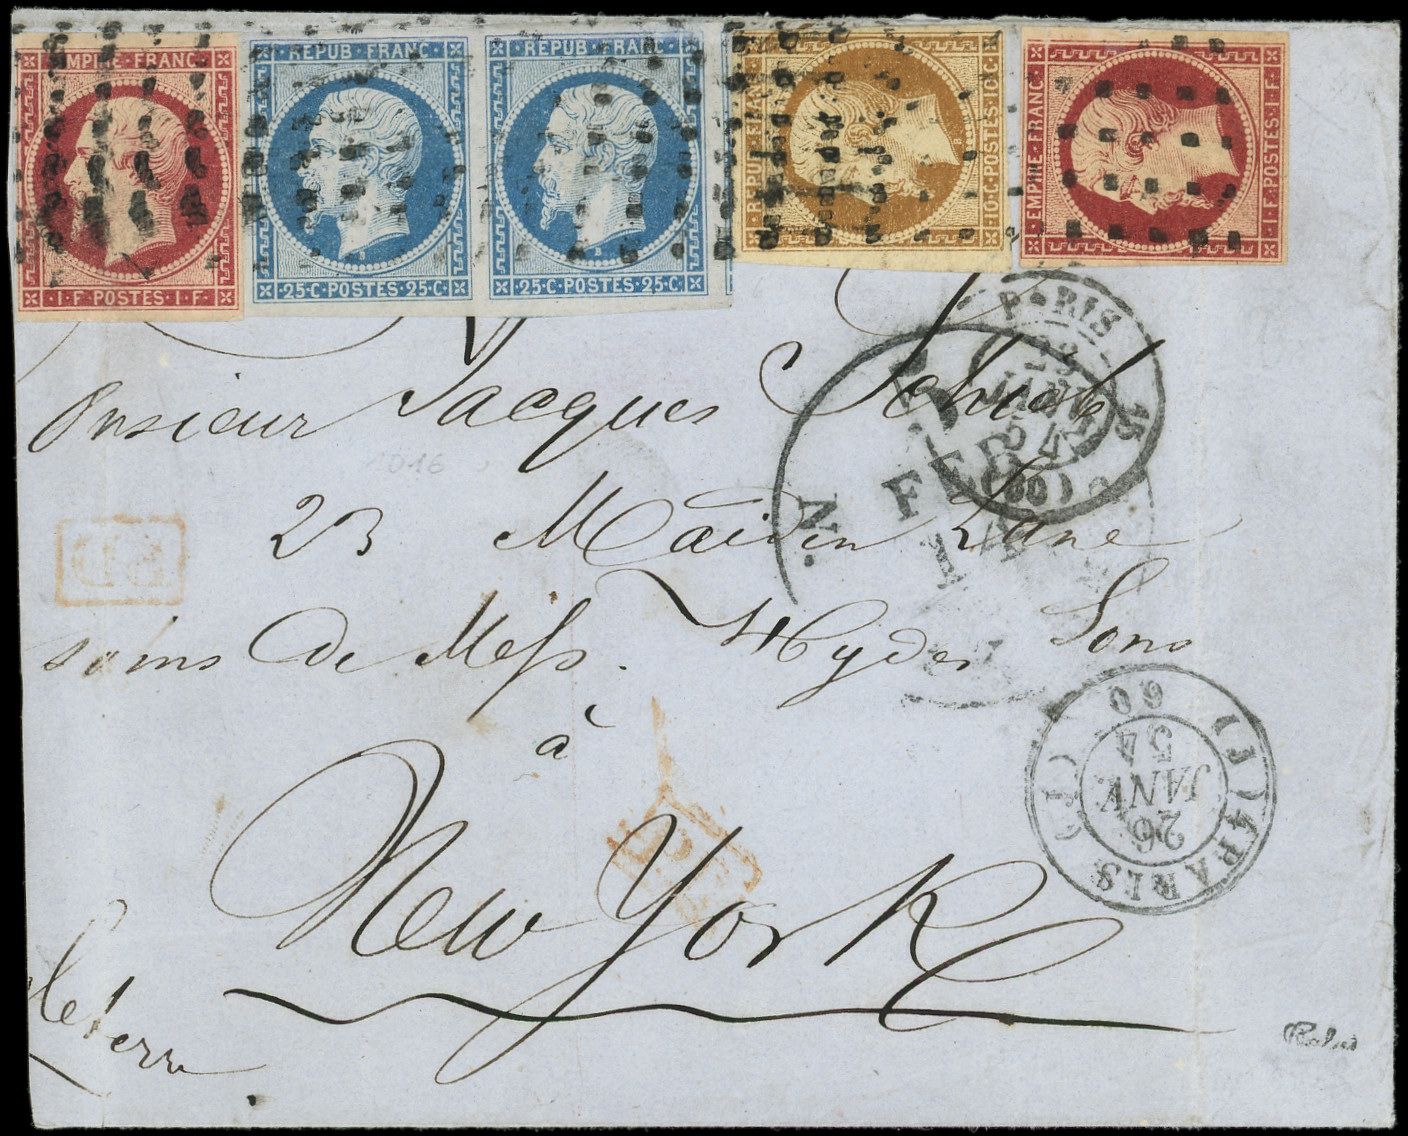 EMPIRE·FRANC·
1·F·POSTES·1·F·
REPUB·FRANC·
25·C·POSTES·25·C·
REPUB·FRANC·
25·C·POSTES·25·C·
REPUB·FRANC·
10·C·POSTES·10·C·
EMPIRE·FRANC·
1·F·POSTES·1·F·
PARIS
JANV
54
(60)
onsieur Jacques Schwob
1016
N.
FEB
14
23 Maiden Lane
PD
soins de Mess. Hyde Sons
à
PD
New York
PARIS
26
JANV.
54
60
leterre